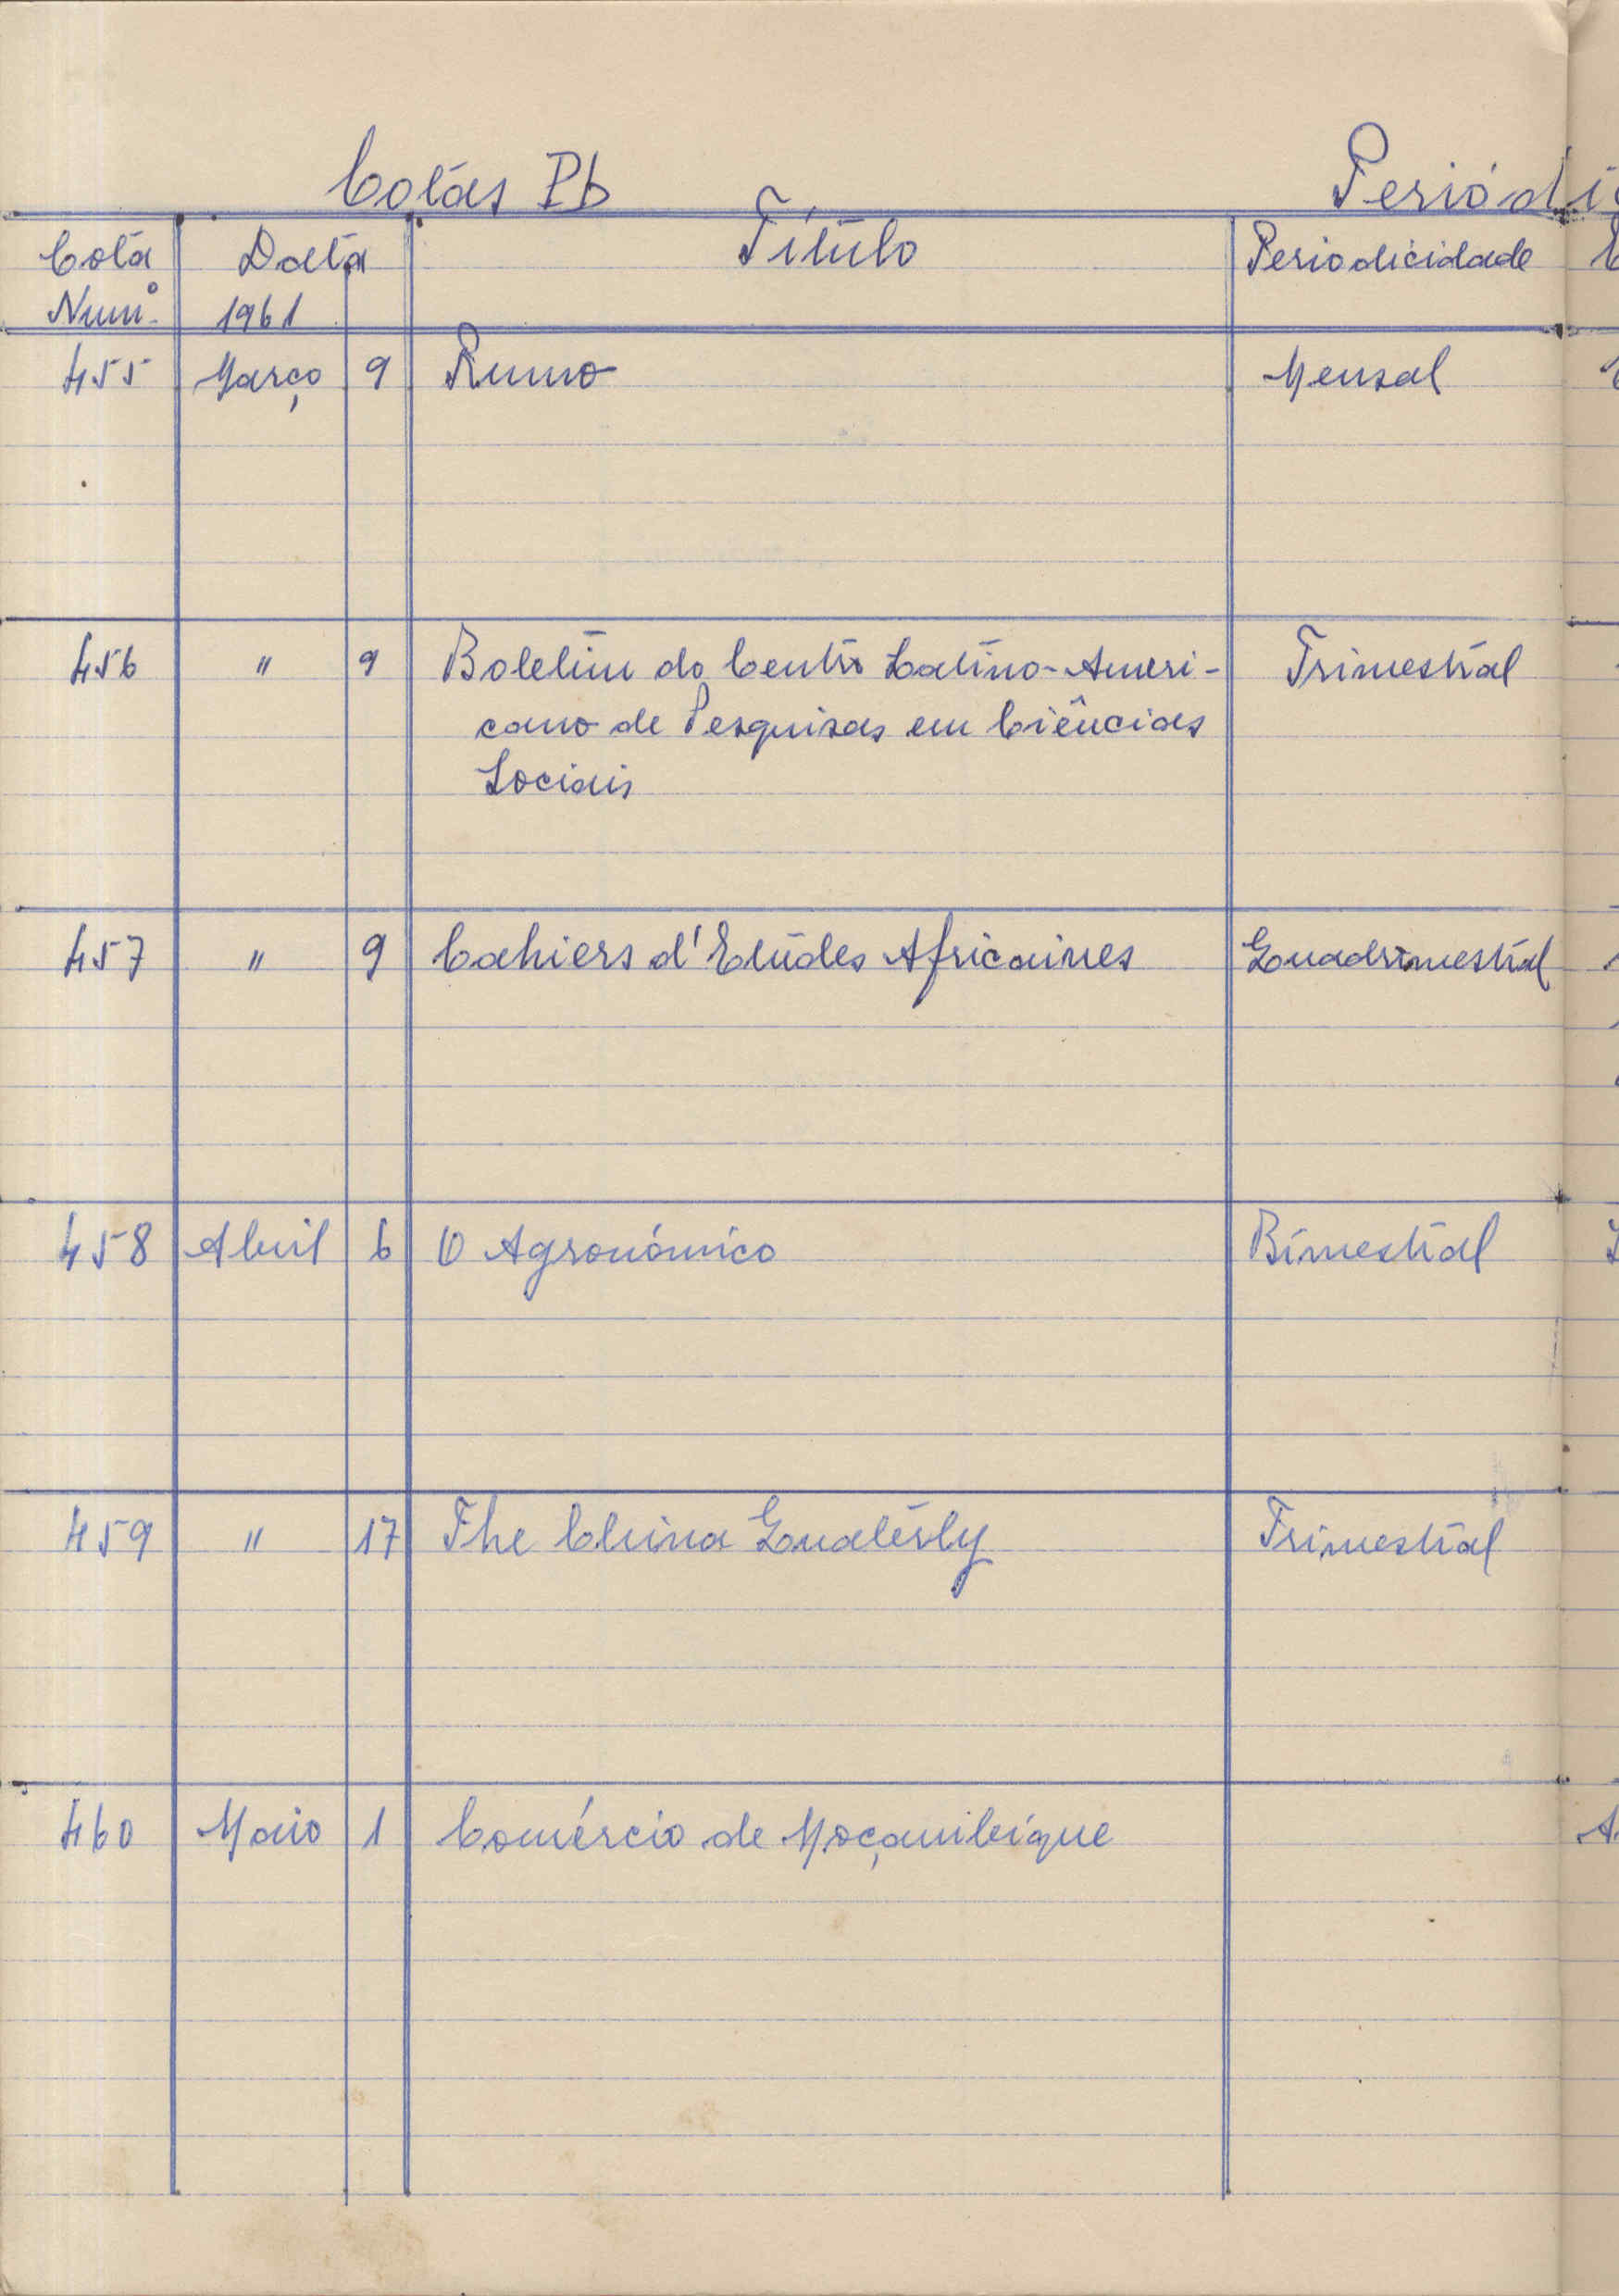 Cotas Pb Periódi
Cota Data Título Periodicidade
Numº 1961
455 Março 9 Rumo Mensal
456 " 9 Boletim do Centro Latino-Ameri- Trimestral
cano de Pesquisas em Ciências
Sociais
457 " 9 Cahiers d'Etudes Africaines Quadrimestral
458 Abril 6 O Agronómico Bimestral
459 " 17 The China Quaterly Trimestral
460 Maio 1 Comércio de Moçambique